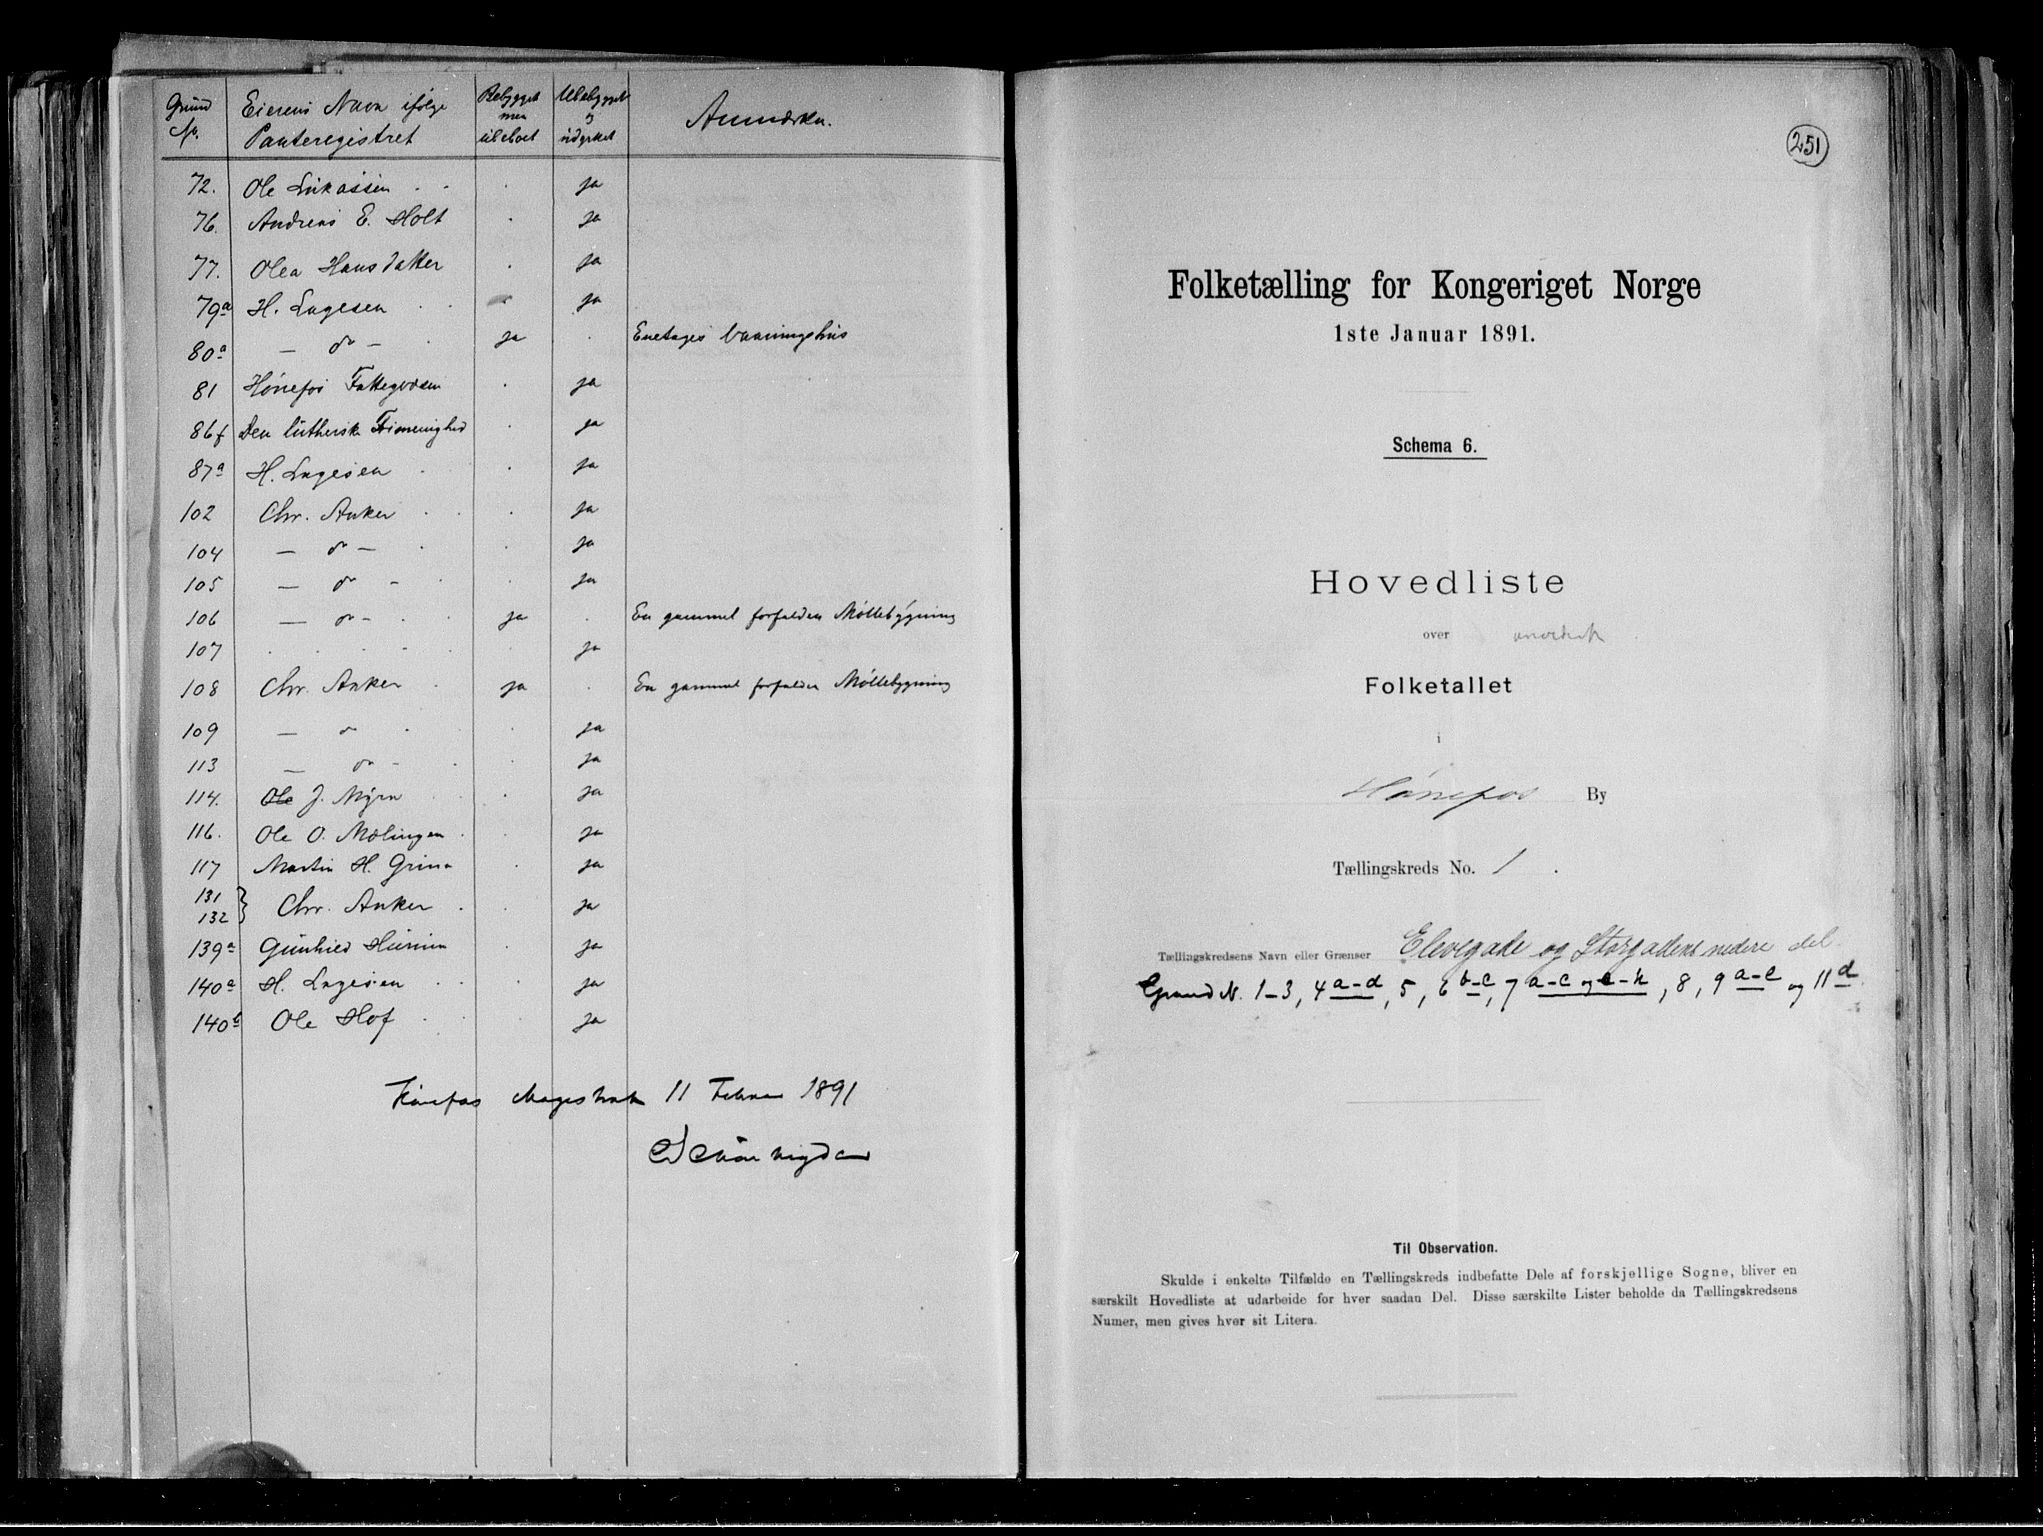 Grund No. Eierens Navn ifølge Panteregistret Bebygget men ubeboet Ubebygget og udyrket Anmærkn.
72. Ole Lukassen . . . ja
76. Andreas E. Holt . ja
77. Olea Hansdatter . ja
79a H. Lagesen . . . ja
80a — do — . ja . Enetages Vaaningshus
81 Hønefos Fattigvæsen . ja
86f Den lutherske Frimenighed . ja
87a H. Lagesen . . ja
102 Chr. Anker . . . ja
104 — do — . . ja
105 — do - . . ja
106 — do - . . ja . En gammel forfalden Møllebygning
107 . . . . . . ja
108 Chr. Anker . ja . En gammel forfalden Møllebygning
109 — do . . ja
113 — do - . . ja
114. Ole J. Myra . . ja
116. Ole O. Mælingen . . ja
117 Martin H. Grina . ja
131
132 } Chr. Anker . . ja
139a Gunhild Hurum . ja
140a H. Lagesen . . ja
140b Ole Hof . . ja
Hønefos Magistrat 11 Februar 1891
251
Folketælling for Kongeriget Norge
1ste Januar 1891.
Schema 6.
Hovedliste
over
Folketallet
i
Hønefos By
Tællingskreds No. 1.
Tællingskredsens Navn eller Grænser Elvegade og Storgadens nedre del.
Grund N. 1-3, 4 a-d, 5, 6 b-c, 7 a-c og e-k, 8, 9 a-e og 11 d.
Til Observation.
Skulde i enkelte Tilfælde en Tællingskreds indbefatte Dele af forskjellige Sogne, bliver en
særskilt Hovedliste at udarbeide for hver saadan Del. Disse særskilte Lister beholde da Tællingskredsens
Numer, men gives hver sit Litera.